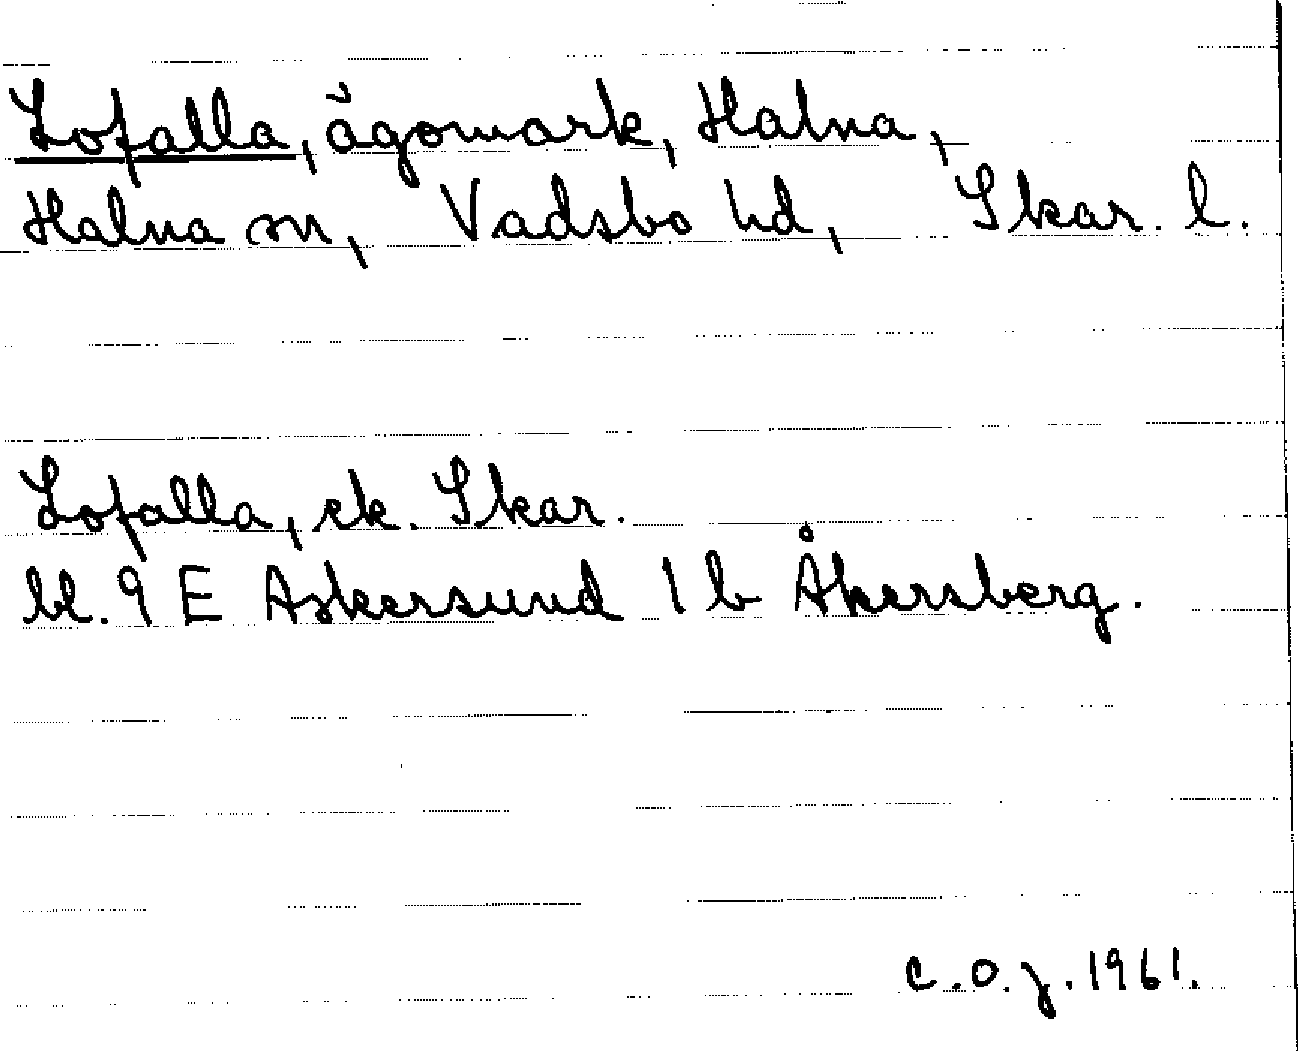 Lofalla, ägomark, Halna,
Halna sn, Vadsbo hd, Skar. l.
Lofalla, ek. Skar.
bl. 9 E Askersund 1 b Åkersberg.
C.O.J. 1961.